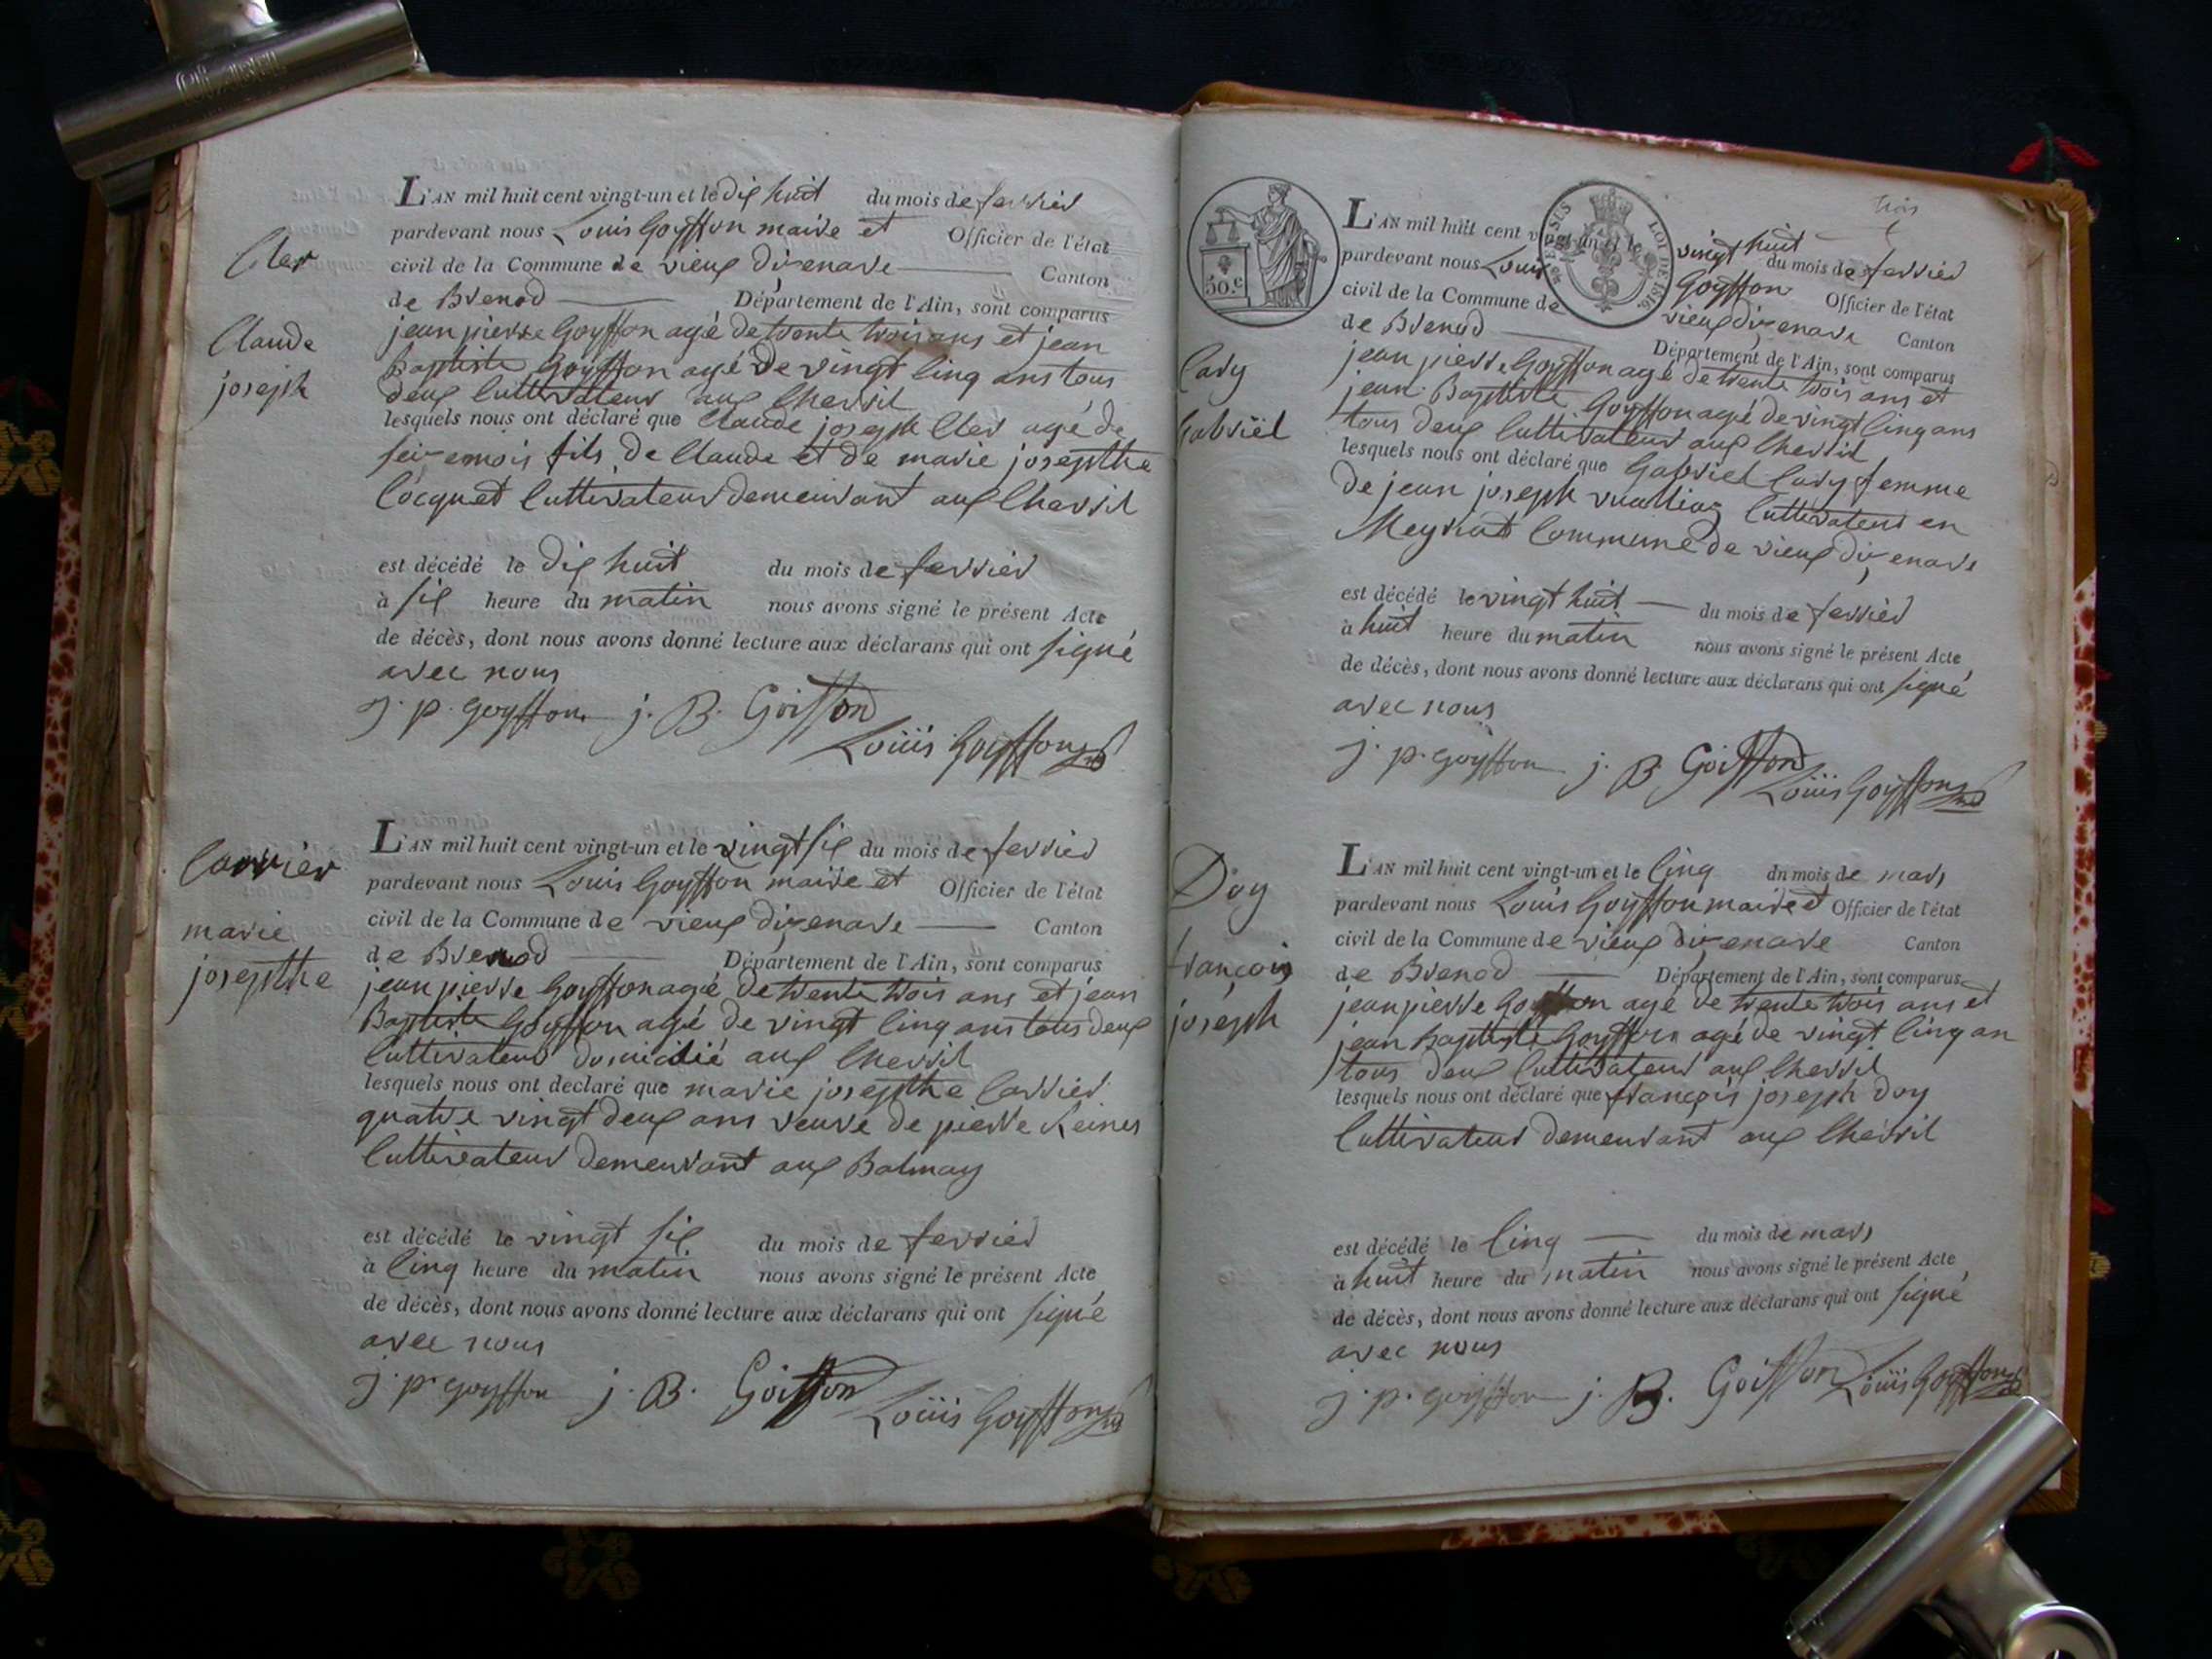 L'AN mil huit cent vingt-un et le dix huit du mois de fevrier
pardevant nous Louis Goyffon maire et Officier de l'état
civil de la Commune de vieux dizenave Canton
de Brenod Département de l'Ain, sont comparus
jean pierre Goyffon agé de trente trois ans et jean
Baptiste Goyffon agé de vingt cinq ans tous
deux Cultivateur aux Chevril
lesquels nous ont déclaré que Claude joseph Cler agé de
seize mois fils de Claude et de marie josepthe
Cocquet Cultivateur demeurant aux Chevril
est décédé le dix huit du mois de fevrier
à six heure du matin nous avons signé le présent Acte
de décès, dont nous avons donné lecture aux déclarans qui ont signé
avec nous
j. p. goyffon j. B. Goiffon
Louis Goyffon
Cler
Claude
joseph
L'AN mil huit cent vingt-un et le vingt six du mois de fevrier
pardevant nous Louis Goyffon maire et Officier de l'état
civil de la Commune de vieux dizenave Canton
de Brenod Département de l'Ain, sont comparus
jean pierre Goyffon agé de trente trois ans et jean
Baptiste Goyffon agé de vingt cinq ans tous deux
Cultivateur domicilié aux Chevril
lesquels nous ont declaré que marie josepthe Carrier
quatre vingt deux ans veuve de pierre Reines
Cultivateur demeurant aux Balmay
est décédé le vingt six du mois de fevrier
à cinq heure du matin nous avons signé le présent Acte
de décès, dont nous avons donné lecture aux déclarans qui ont signé
avec nous
j. p. goyffon j. B. Goiffon
Louis Goyffon
Carrier
marie
josepthe
trois
50.c
LOI DE 1816.
L'AN mil huit cent vingt-un et le vingt huit du mois de fevrier
pardevant nous Louis Goyffon Officier de l'état
civil de la Commune de vieux dizenave Canton
de Brenod Département de l'Ain, sont comparus
jean pierre Goyffon agé de trente trois ans et
jean Baptiste Goyffon agé de vingt cinq ans
tous deux Cultivateur aux Chevril
lesquels nous ont déclaré que Gabriel Cavy femme
de jean joseph Cultivateur en
Meyriat Commune de vieux dizenave
est décédé le vingt huit du mois de fevrier
à huit heure du matin nous avons signé le présent Acte
de décès, dont nous avons donné lecture aux déclarans qui ont signé
avec nous
j. p. goyffon j. B. Goiffon
Louis Goyffon
Cavy
Gabriel
L'AN mil huit cent vingt-un et le cinq du mois de mars
pardevant nous Louis Goyffon maire et Officier de l'état
civil de la Commune de vieux dizenave Canton
de Brenod Département de l'Ain, sont comparus
jean pierre Goyffon agé de trente trois ans et
jean Baptiste Goyffon agé de vingt cinq an
tous deux Cultivateur aux Chevril
lesquels nous ont déclaré que françois joseph Doy
Cultivateur demeurant aux Chevril
est décédé le cinq du mois de mars
à huit heure du matin nous avons signé le présent Acte
de décès, dont nous avons donné lecture aux déclarans qui ont signé
avec nous
j. p. goyffon j. B. Goiffon Louis Goyffon
Doy
françois
joseph